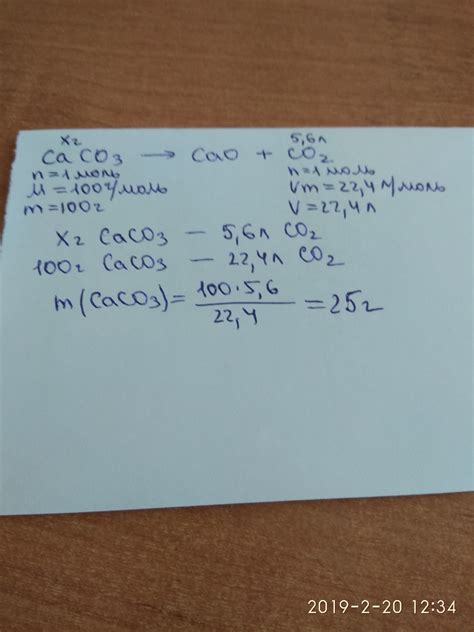 хг 5,6л
CaCO₃ → CaO + CO₂
n=1моль n=1моль
M=100г/моль Vm=22,4л/моль
m=100г V=22,4л
хг CaCO₃ – 5,6л CO₂
100г CaCO₃ – 22,4л CO₂
m(CaCO₃)= 100·5,6 / 22,4 =25г
2019-2-20 12:34